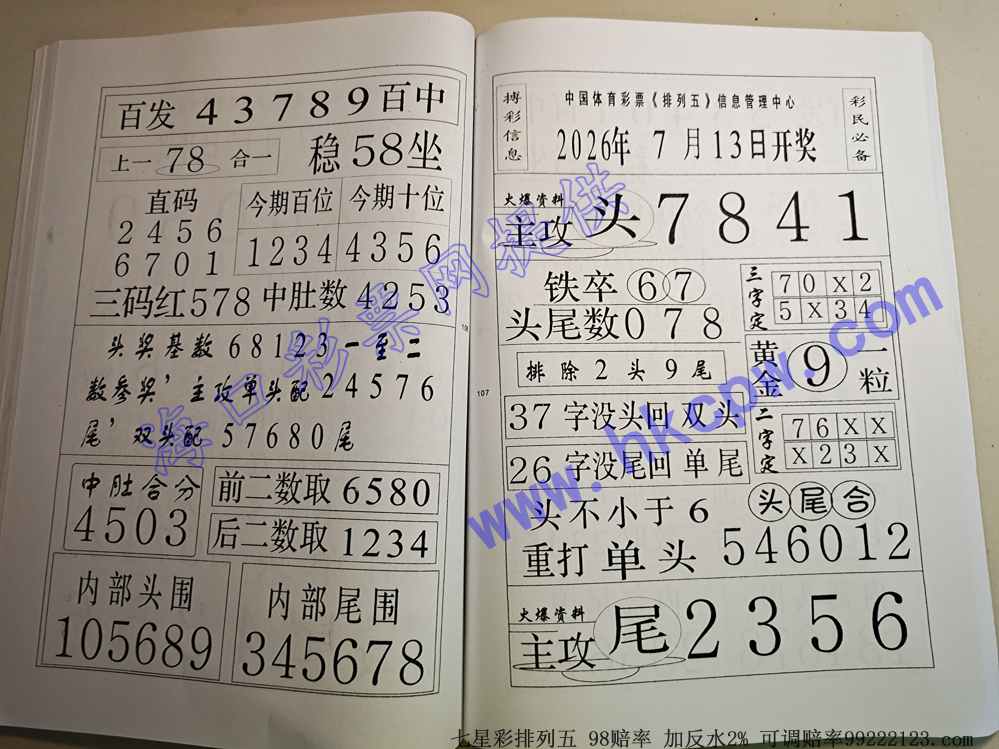 百发 43789 百中
上一 78 合一
稳 58 坐
直码
2456
6701
今期百位
1234
今期十位
4356
三码红 578 中肚数 4253
头奖基数 68123 一至二
数参奖，主攻单头配 24576
尾，双头配 57680 尾
中肚合分
4503
前二数取 6580
后二数取 1234
内部头围
105689
内部尾围
345678
搏彩信息
中国体育彩票《排列五》信息管理中心
2026年 7 月 13日开奖
彩民必备
火爆资料
主攻 头 7841
铁卒 6 7
头尾数 0 7 8
排除 2 头 9 尾
三字定
7 0 X 2
5 X 3 4
黄金 9 一粒
37 字没头回 双头
26 字没尾回 单尾
二字定
7 6 X X
X 2 3 X
头不小于 6
重打 单 头
头尾合
546012
火爆资料
主攻 尾 2356
107
海口彩票网提供
www.hkcpw.com
七星彩排列五 98赔率 加反水2% 可调赔率99222123.com